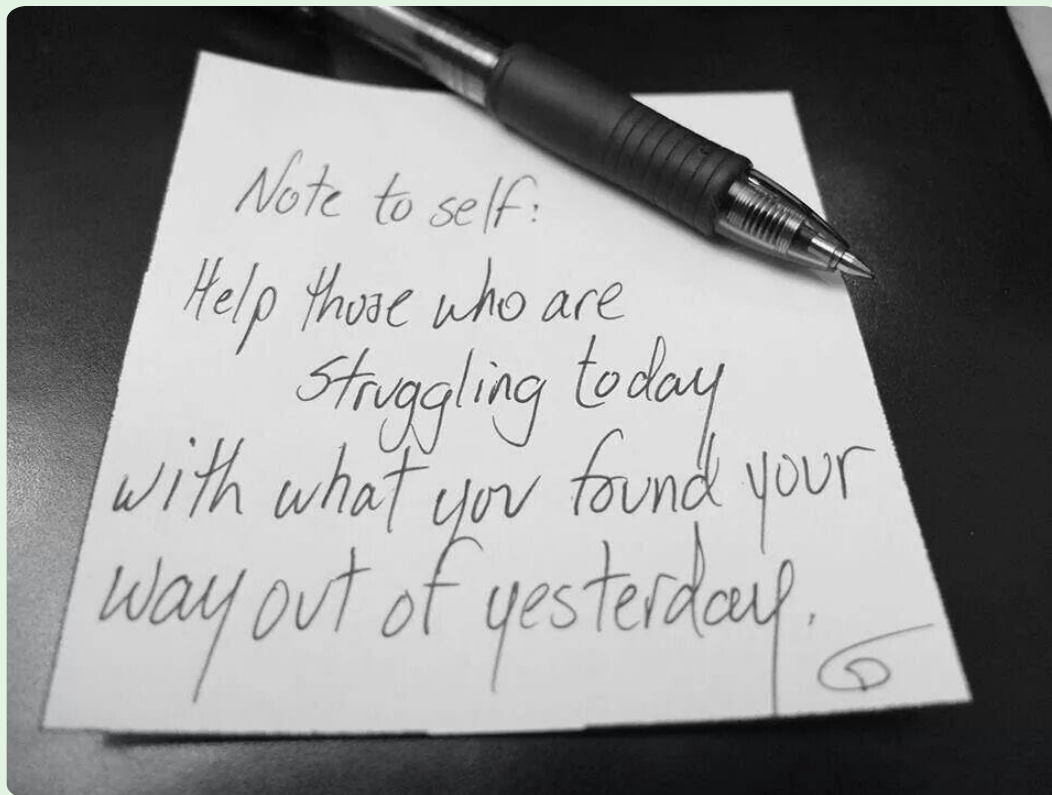 Note to self:
Help those who are
struggling today
with what you found your
way out of yesterday.